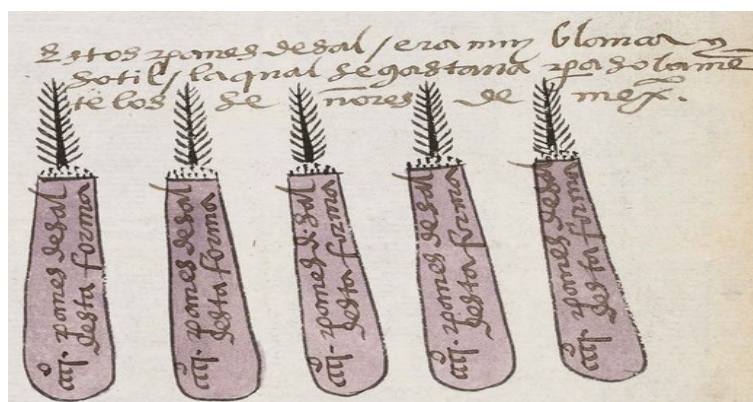 Estos panes de sal / era muy blanca y
sotil / la qual se gastava pa solamẽ
te los señores de mexº.
iiijº. panes de sal
desta forma
iiijº. panes de sal
desta forma
iiijº. panes de sal
desta forma
iiijº. panes de sal
desta forma
iiijº. panes de sal
desta forma